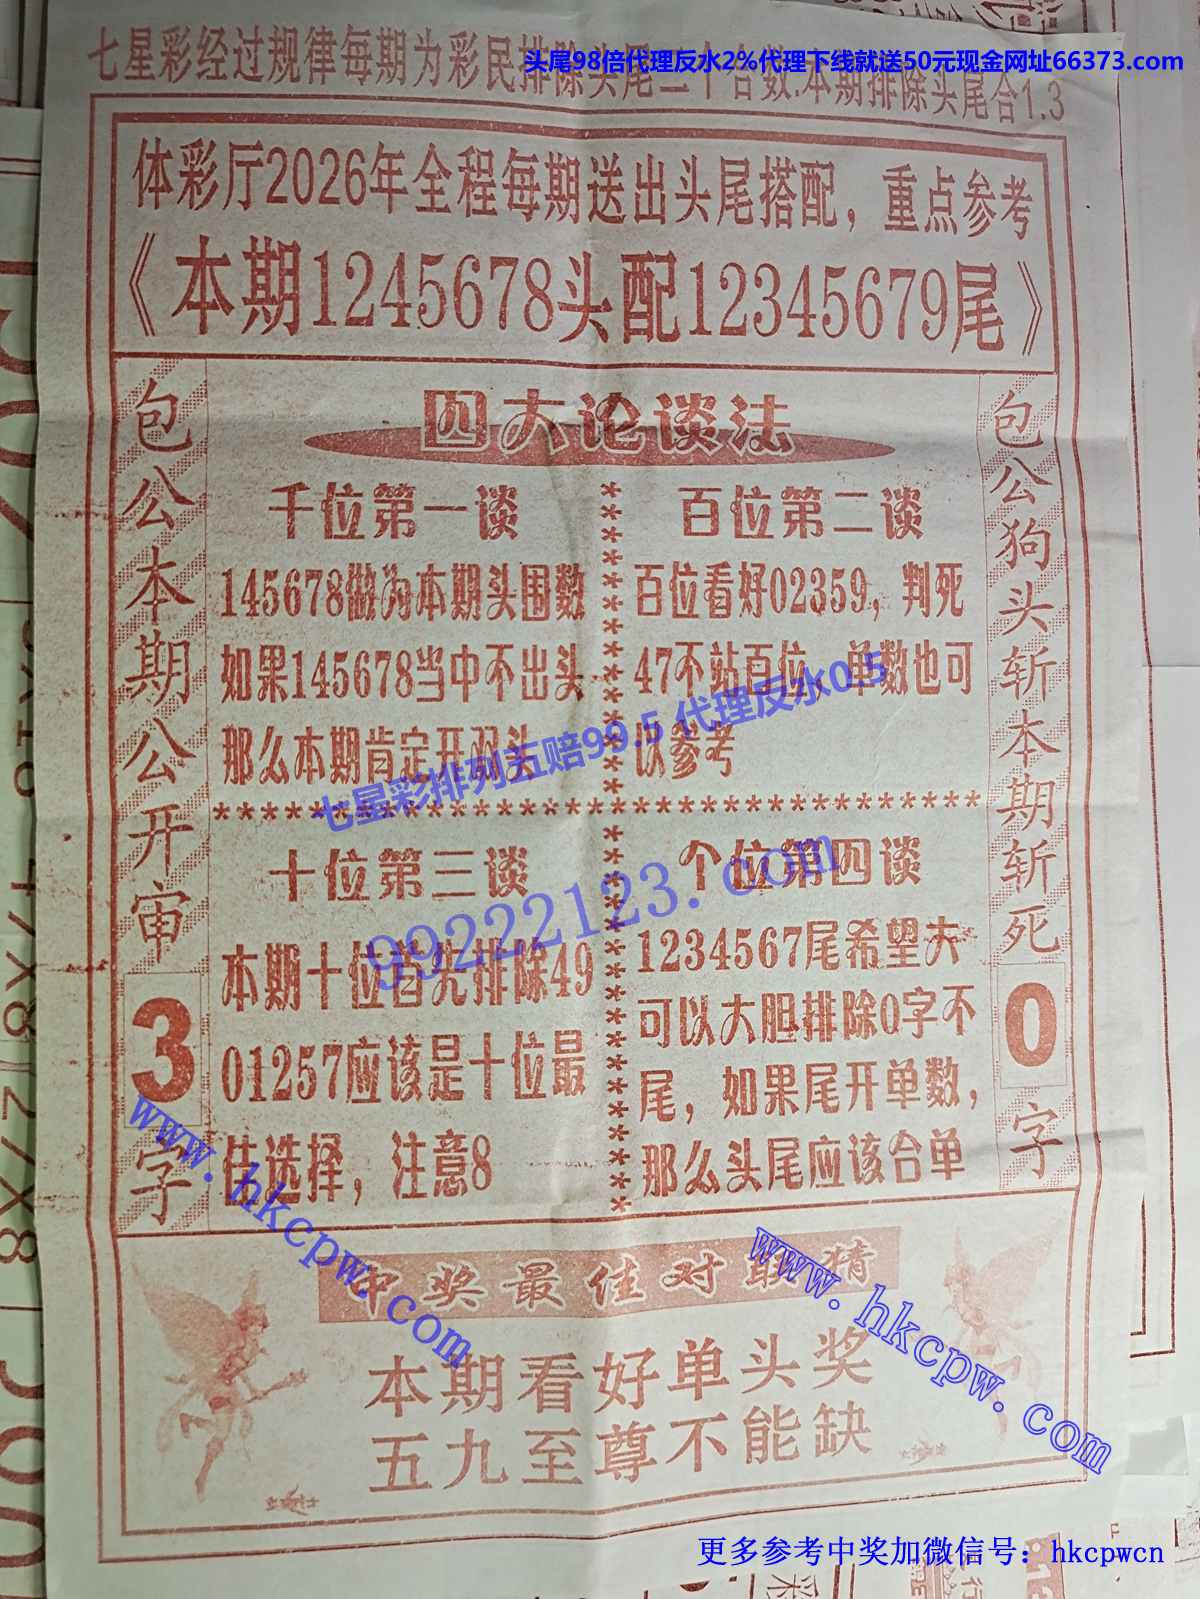 头尾98倍代理反水2%代理下线就送50元现金网址66373.com
七星彩经过规律每期为彩民排除头尾二个合数.本期排除头尾合1.3
体彩厅2026年全程每期送出头尾搭配，重点参考
《本期1245678头配12345679尾》
包公本期公开审3字
四大论谈法
千位第一谈
145678做为本期头围数
如果145678当中不出头
那么本期肯定开双头
百位第二谈
百位看好02359，判死
47不站百位，单数也可
以参考
七星彩排列五赔99.5 代理反水0.5
十位第三谈
本期十位首先排除49
01257应该是十位最
佳选择，注意8
个位第四谈
1234567尾希望大
可以大胆排除0字不
尾，如果尾开单数，
那么头尾应该合单
99222123.com
包公狗头斩本期斩死0字
www.hkcpw.com
www.hkcpw.com
中奖最佳对联猜
本期看好单头奖
五九至尊不能缺
更多参考中奖加微信号：hkcpwcn